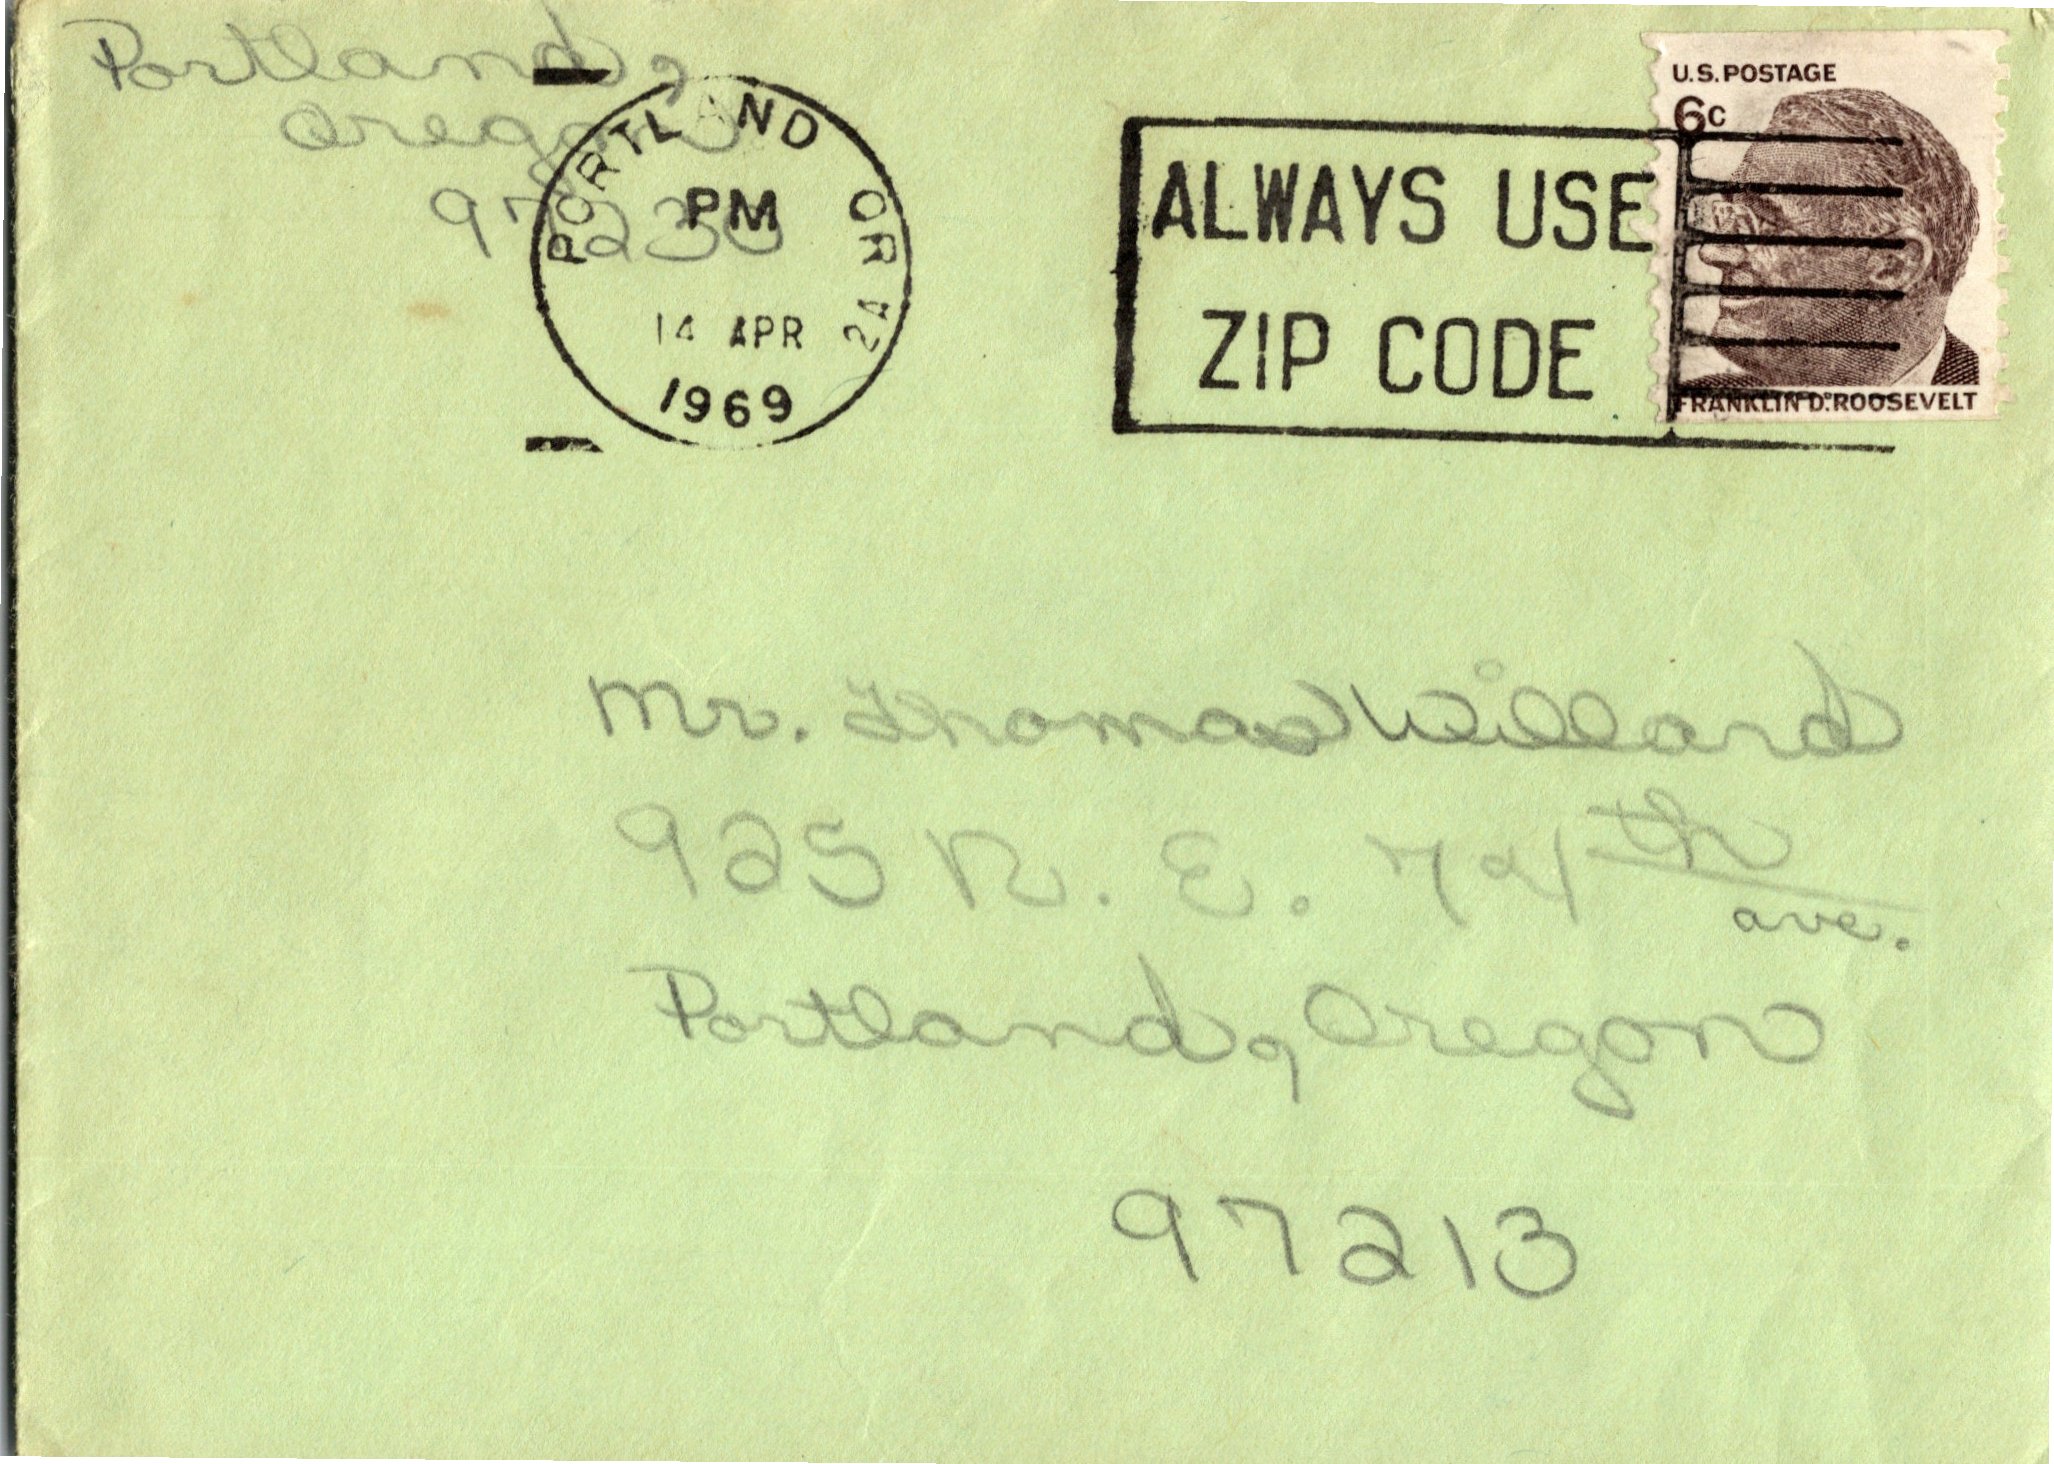 Portland,
Oregon
97230
PORTLAND OR 2A
PM
14 APR
1969
ALWAYS USE
ZIP CODE
U.S. POSTAGE
6c
FRANKLIN D. ROOSEVELT
Mr. Thomas Willard
925 N. E. 74th
ave.
Portland, Oregon
97213